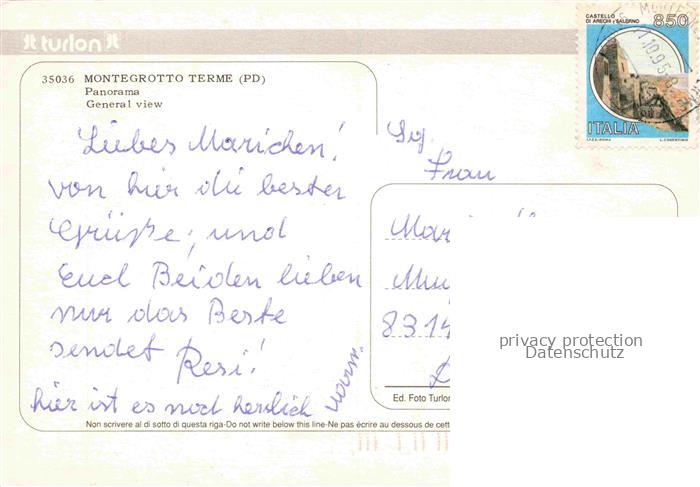 turlon
35036 MONTEGROTTO TERME (PD)
Panorama
General view
CASTELLO
DI ARECHI / SALERNO
850
ITALIA
I.P.Z.S. - ROMA
Liebes Marichen!
von hier die besten
Grüße, und
Euch Beiden lieben
nur das Beste
sendet Resi!
hier ist es noch herrlich
warm.
Frau
Mari
8314
privacy protection
Datenschutz
Ed. Foto Turlon
Non scrivere al di sotto di questa riga-Do not write below this line-Ne pas écrire au dessous de cett